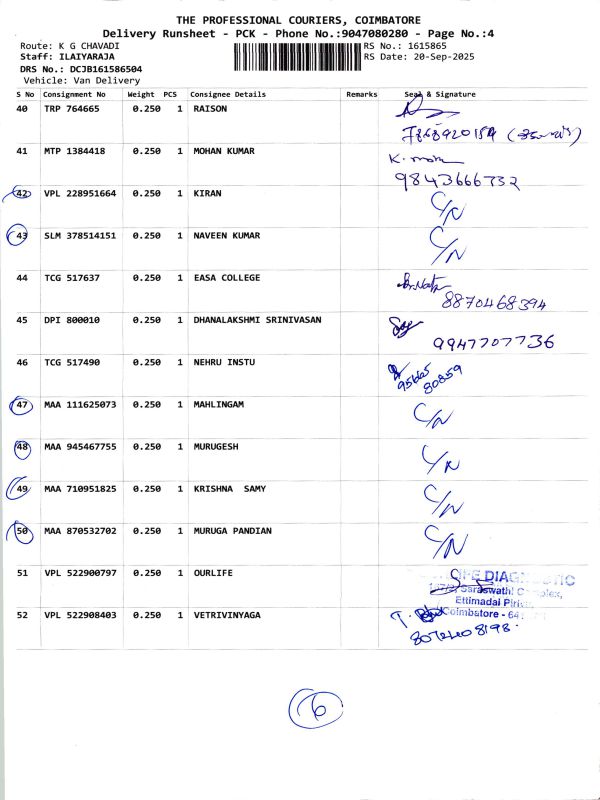 THE PROFESSIONAL COURIERS, COIMBATORE
Delivery Runsheet - PCK - Phone No.:9047080280 - Page No.:4
Route: K G CHAVADI RS No.: 1615865
Staff: ILAIYARAJA RS Date: 20-Sep-2025
DRS No.: DCJB161586504
Vehicle: Van Delivery
S No Consignment No Weight PCS Consignee Details Remarks Seal & Signature
40 TRP 764665 0.250 1 RAISON
41 MTP 1384418 0.250 1 MOHAN KUMAR K. moh
9843666732
42 VPL 228951664 0.250 1 KIRAN C/N
43 SLM 378514151 0.250 1 NAVEEN KUMAR C/N
44 TCG 517637 0.250 1 EASA COLLEGE
8870468394
45 DPI 800010 0.250 1 DHANALAKSHMI SRINIVASAN
9947707736
46 TCG 517490 0.250 1 NEHRU INSTU
80859
47 MAA 111625073 0.250 1 MAHLINGAM C/N
48 MAA 945467755 0.250 1 MURUGESH C/N
49 MAA 710951825 0.250 1 KRISHNA SAMY C/N
50 MAA 870532702 0.250 1 MURUGA PANDIAN C/N
51 VPL 522900797 0.250 1 OURLIFE
Saraswathi
Ettimadai
52 VPL 522908403 0.250 1 VETRIVINYAGA Coimbatore - 64
6